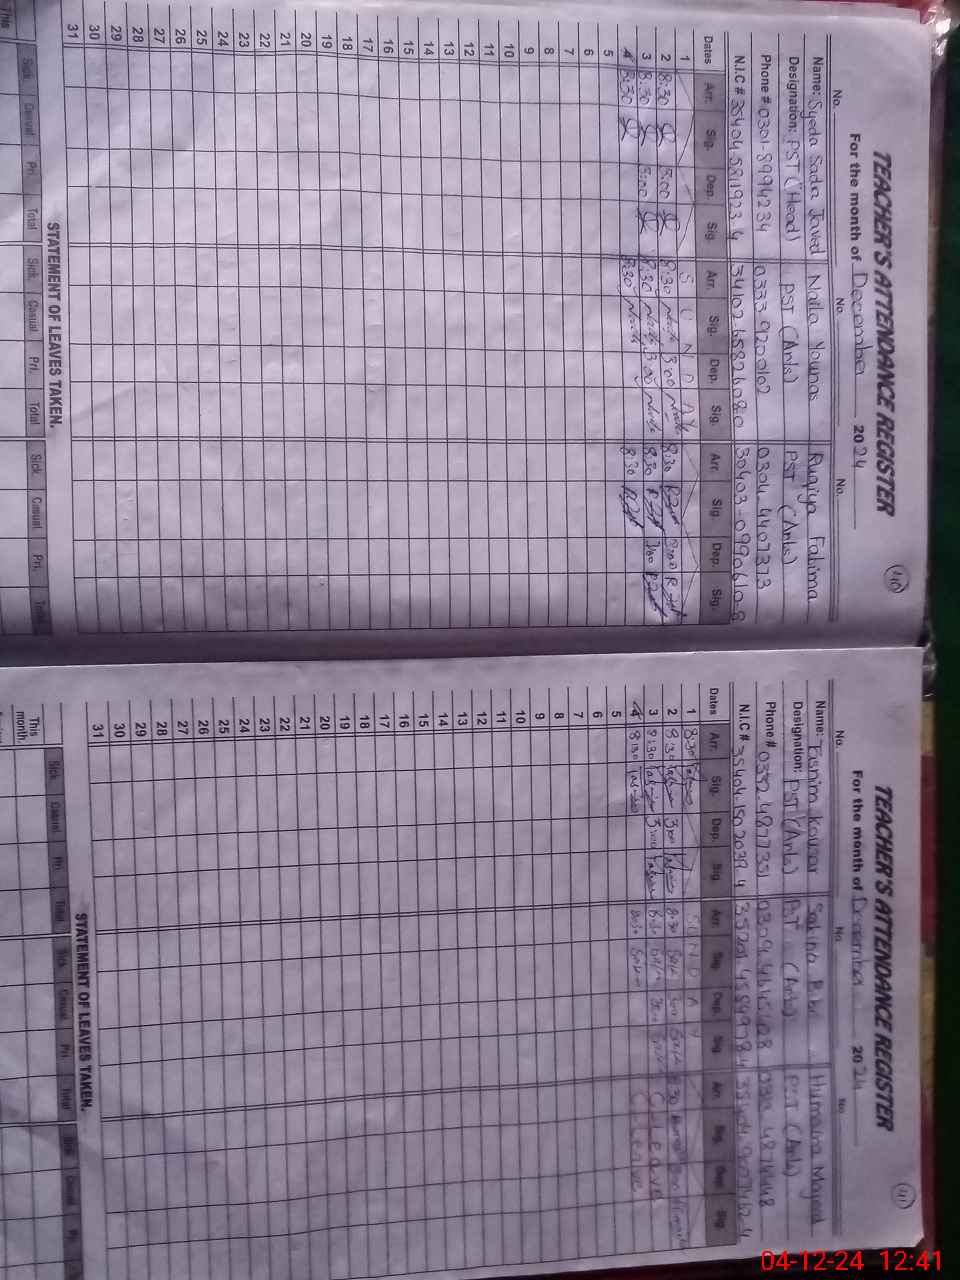 TEACHER'S ATTENDANCE REGISTER
40
For the month of December 2024
No. No. No.
Name: Syeda Sadia Javed Naila Younas Ruqiya Fatima
Designation: PST (Head) PST (Arts) PST (Arts)
Phone # 0301-8994234 0333 9200102 0304-4407373
N.I.C # 35404-5811923 4
Dates Arr. Sig. Dep. Sig. Arr. Sig. Dep. Sig. Arr. Sig. Dep. Sig.
1 S U N D A Y
2 8:30 3:00 8:30 3:00 8:30 3:00
3 8:30 3:00 8:30 3:00 8:30 3:00
4 8:30 8:30 8:30
5
6
7
8
9
10
11
12
13
14
15
16
17
18
19
20
21
22
23
24
25
26
27
28
29
30
31
STATEMENT OF LEAVES TAKEN.
Sick. Casual. Pri. Total Sick. Casual. Pri. Total Sick. Casual. Pri. Total
This
TEACHER'S ATTENDANCE REGISTER
41
For the month of December 2024
No. No. No.
Name: Tasnim Kousar Sakina Bibi Humaira Majeed
Designation: PST (Arts) PST (Arts) PST (Arts)
Phone # 0332 4877351
N.I.C # 35404-1502039 4
Dates Arr. Sig. Dep. Sig. Arr. Sig. Dep. Sig. Arr. Sig. Dep. Sig.
1 8:30 S U N D A Y
2 8:30 3:00 8:30 3:00 8:30
3 8:30 3:00 8:30 3:00 C Leave
4 8:30 8:30 C Leave
5
6
7
8
9
10
11
12
13
14
15
16
17
18
19
20
21
22
23
24
25
26
27
28
29
30
31
STATEMENT OF LEAVES TAKEN.
Sick. Casual. Pri. Total Sick. Casual. Pri. Total Sick. Casual. Pri.
This month.
04-12-24 12:41